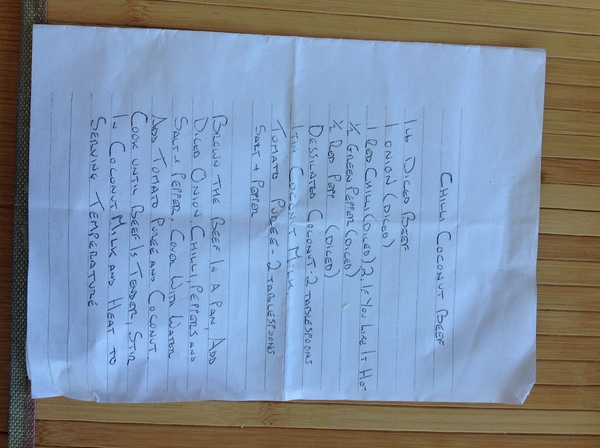 CHILLI COCONUT BEEF
1 lb DICED BEEF
1 ONION (DICED)
1 RED CHILLI (DICED) 2 IF YOU LIKE IT HOT
1/2 GREEN PEPPER (DICED)
1/2 RED PEPP (DICED)
DESSICATED COCONUT - 2 TABLESPOONS
1 TIN COCONUT MILK
TOMATO PUREE - 2 TABLESPOONS
SALT & PEPPER
BROWN THE BEEF IN A PAN, ADD
DICED ONION CHILLI, PEPPERS AND
SALT & PEPPER. COVER WITH WATER
ADD TOMATO PUREE AND COCONUT
COOK UNTIL BEEF IS TENDER, STIR
IN COCONUT MILK AND HEAT TO
SERVING TEMPERATURE